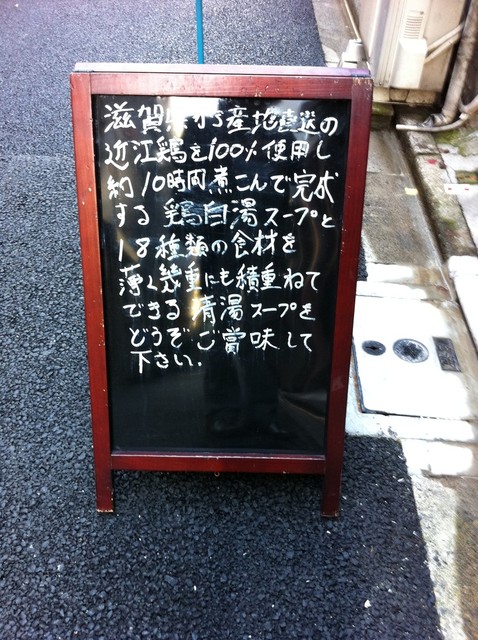 滋賀県から産地直送の
近江鶏を100%使用し
約10時間煮こんで完成
する 鶏白湯スープと
18種類の食材を
薄く幾重にも積重ねて
できる 清湯スープを
どうぞご賞味して
下さい。